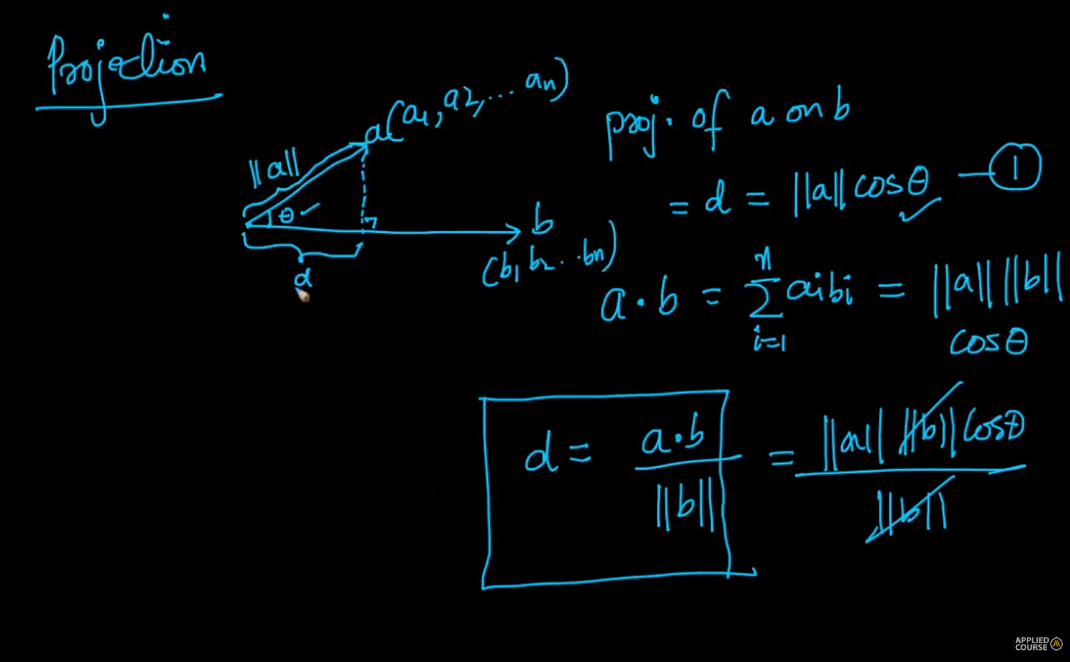 Projection
a(a1, a2, ... an)
||a||
θ
b
(b1, b2 .. bn)
d
proj. of a on b
= d = ||a|| cosθ — 1
a · b = n∑i=1 aibi = ||a|| ||b||
cosθ
d = a·b / ||b|| = ||a|| ||b|| cosθ / ||b||
APPLIED
COURSE